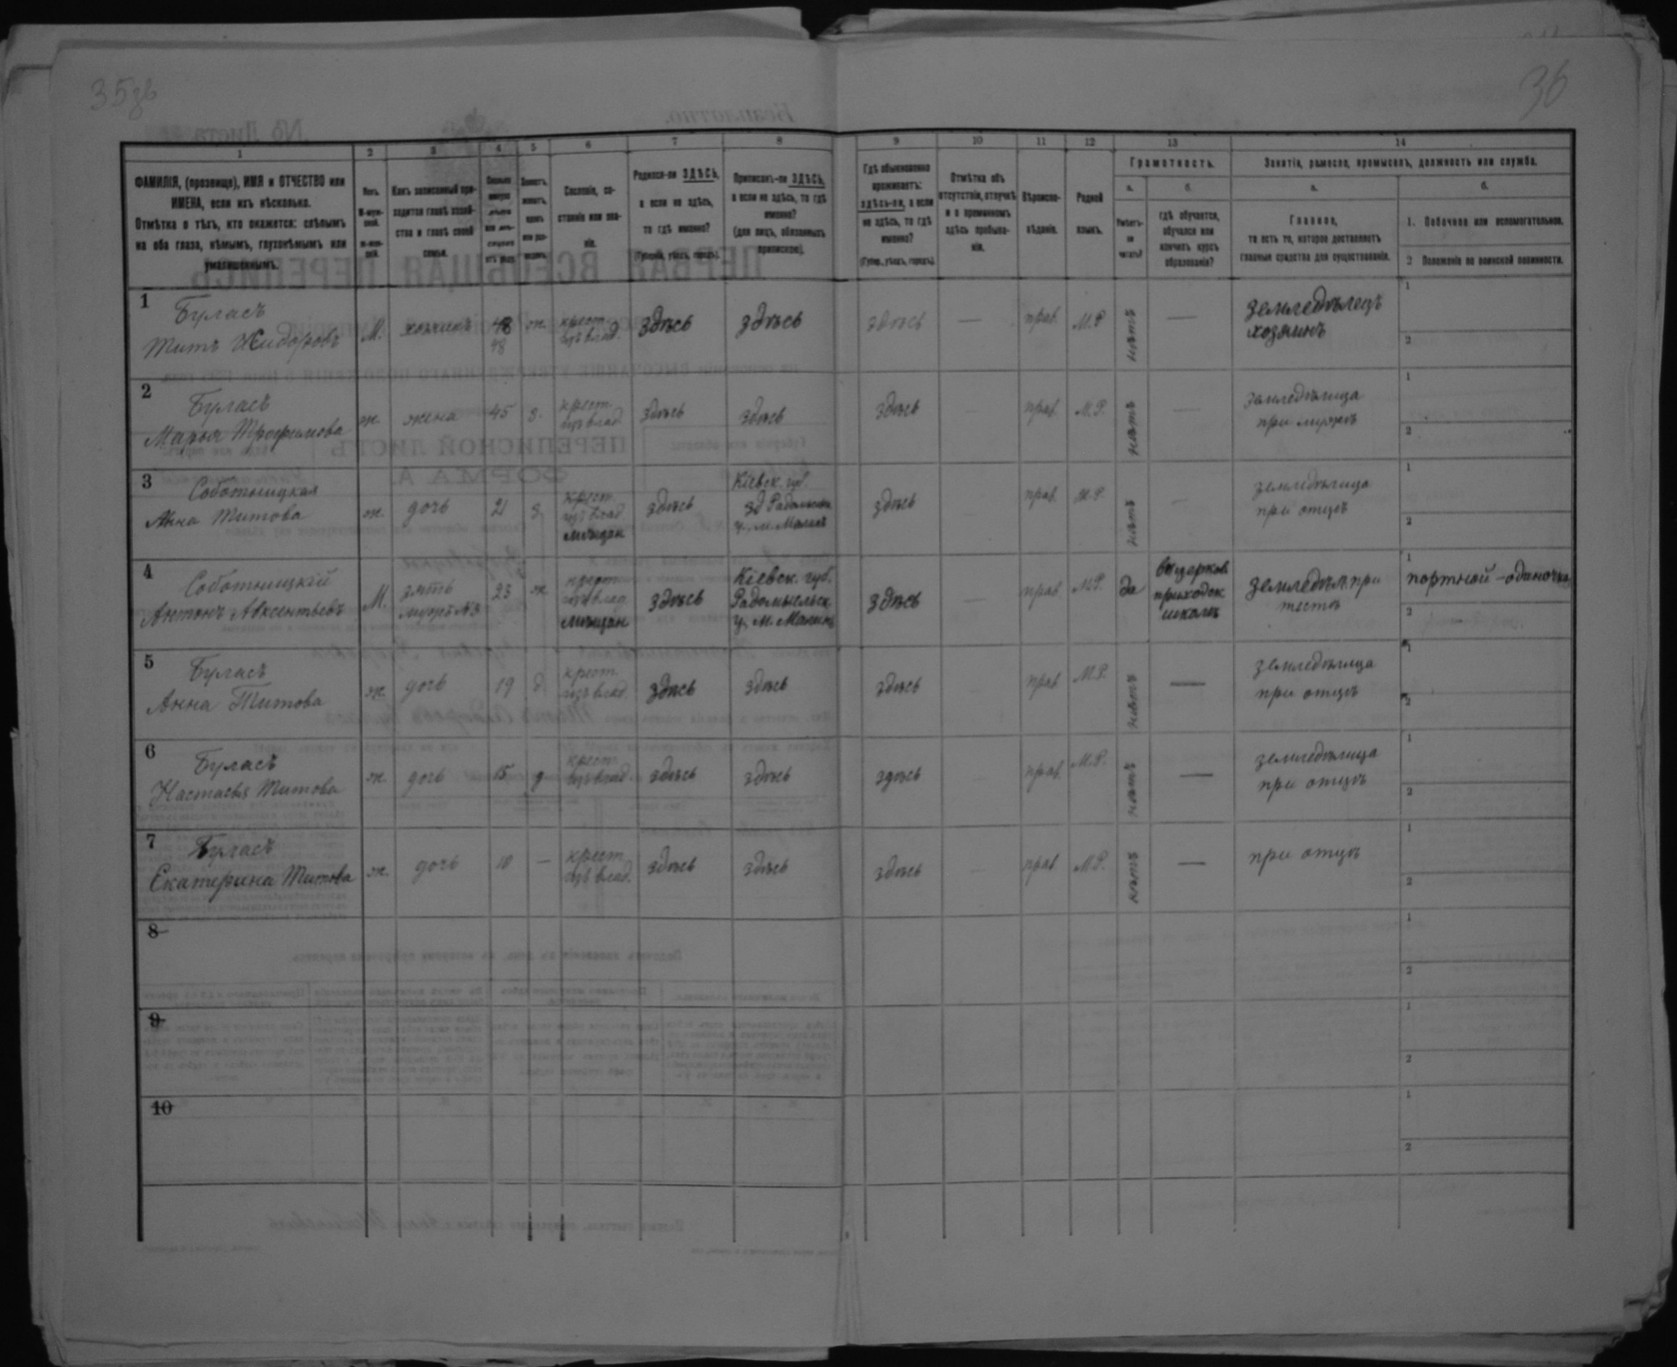 35зв
36
1
2
3
4
5
6
7
8
9
10
11
12
13
14
ФАМИЛІЯ, (прозвище), ИМЯ и ОТЧЕСТВО или
ИМЕНА, если ихъ нѣсколько.
Отмѣтка о тѣхъ, кто окажется: слѣпымъ
на оба глаза, нѣмымъ, глухонѣмымъ или
умалишеннымъ.
Какъ записанный при-
ходится главѣ хозяй-
ства и главѣ своей
семьи.
Сословіе, со-
стояніе или зва-
ніе.
Родился-ли ЗДѢСЬ,
а если не здѣсь,
то гдѣ именно?
(Губернія, уѣздъ, городъ).
Приписанъ-ли ЗДѢСЬ,
а если не здѣсь, то гдѣ
именно?
(для лицъ, обязанныхъ
припискою).
Гдѣ обыкновенно
проживаетъ:
здѣсь-ли, а если
не здѣсь, то гдѣ
именно?
(Губер., уѣздъ, городъ).
Отмѣтка объ
отсутствіи, отлучкѣ
и о временномъ
здѣсь пребыва-
ніи.
Вѣроиспо-
вѣданіе.
Родной
языкъ.
Грамотность.
а.
б.
Умѣетъ-
ли
читать?
гдѣ обучается,
обучался или
кончилъ курсъ
образованія?
Занятіе, ремесло, промыселъ, должность или служба.
а.
б.
Главное,
то есть то, которое доставляетъ
главныя средства для существованія.
1. Побочное или вспомогательное.
2 Положеніе по воинской повинности.
1
Буласъ
Титъ Сидоровъ
М.
хозяинъ
48
48
ж.
крест.
изъ влад.
здѣсь
здѣсь
здѣсь
—
прав.
М.Р.
нѣтъ
—
земледѣлецъ
хозяинъ
1
2
2
Буласъ
Марья Трофимова
ж.
жена
45
з.
крест.
изъ влад.
здѣсь
здѣсь
здѣсь
прав.
М.Р.
нѣтъ
—
земледѣлица
при мужѣ
1
2
3
Соботницкая
Анна Титова
ж.
дочь
21
з.
крест.
изъ влад.
мѣщан
здѣсь
Кіевск. губ.
у., м. Малинъ
здѣсь
прав.
М.Р.
нѣтъ
—
земледѣлица
при отцѣ
1
2
4
Соботницкій
Антонъ Авксентьевъ
М.
зять
мужъ №3
23
ж.
крест.
изъ влад.
мѣщан
здѣсь
Кіевск. губ.
Радомысльск.
у. м. Малинъ
здѣсь
—
прав.
М.Р.
да
въ церков.
приходск.
школѣ
земледѣл. при
тестѣ
портной-одиночка
1
2
5
Буласъ
Анна Титова
ж.
дочь
19
д.
крест.
изъ влад.
здѣсь
здѣсь
здѣсь
прав.
М.Р.
нѣтъ
—
земледѣлица
при отцѣ
1
2
6
Буласъ
Настасья Титова
ж.
дочь
15
д
крест.
изъ влад.
здѣсь
здѣсь
здѣсь
прав.
М.Р.
нѣтъ
—
земледѣлица
при отцѣ
1
2
7
Буласъ
Екатерина Титова
ж.
дочь
10
—
крест.
изъ влад.
здѣсь
здѣсь
здѣсь
прав.
М.Р.
нѣтъ
—
при отцѣ
1
2
8
1
2
9
1
2
10
1
2